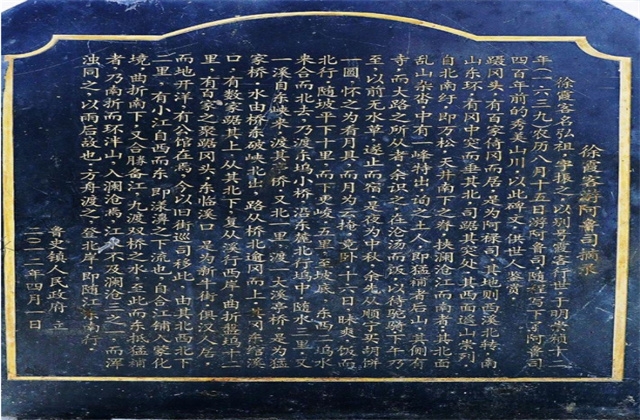 徐霞客游阿鲁司摘录
徐霞客名弘祖,字振之,以别号霞客行世,于明崇祯十二
年(一六三九农历八月十五日)游阿鲁司,随程写下了阿鲁司
四百年前的秀美山川,以此碑文,供世人鉴赏。
蹑冈头,有百家倚冈而居,是为阿禄司。其地则西溪北转,南
山东环,有冈中突而垂其北,司踞其突处。其西面遥山崇列,
自北南纡,即万松、天井南下之脊,挟澜沧江而南者;其北面
乱山杂沓,中有一峰特出,询之土人,即猛补者后山,其侧有
寺,而大路之所从者。余识之,在沧汤而饭,以待驼骑。下午乃
至,以前无水草,遂止而宿。是夜为中秋,余先从顺宁买胡饼
一圆,怀之为看月具,而月为云掩,竟卧。十六日昧爽,饭而
北行。随坡平下十里,而下更峻,五里至坡底,东西二坞水
来合而北去,乃渡东坞小桥,沿东麓北行坞中,随之三里,又
一溪自东峡来,渡其亭桥。又北一里,渡一大溪亭桥,是为猛
家桥。水由桥东破峡北出,路从桥北逾冈而上。其冈东绾溪
口,有数家踞其上。从其北下,复从溪行西岸,曲折盘坞十二
里,有百家之聚踞冈头,东临溪口,是为新牛街,俱汉人居,
而地开洋,有公馆在焉,今以旧街巡司移此。由其北西北下
二里,有小江自西而东,即漾濞之下流也,自合江铺入蒙化
境,曲折南下,又合胜备江、九渡、双桥之水,至此而东抵猛补
者,乃南折而环泮山,入澜沧焉。江东不及澜沧三之一,而浑
浊同之,以雨后故也。方舟渡之,登北岸,即随江东南行。
鲁史镇人民政府 立
二〇一二年四月一日